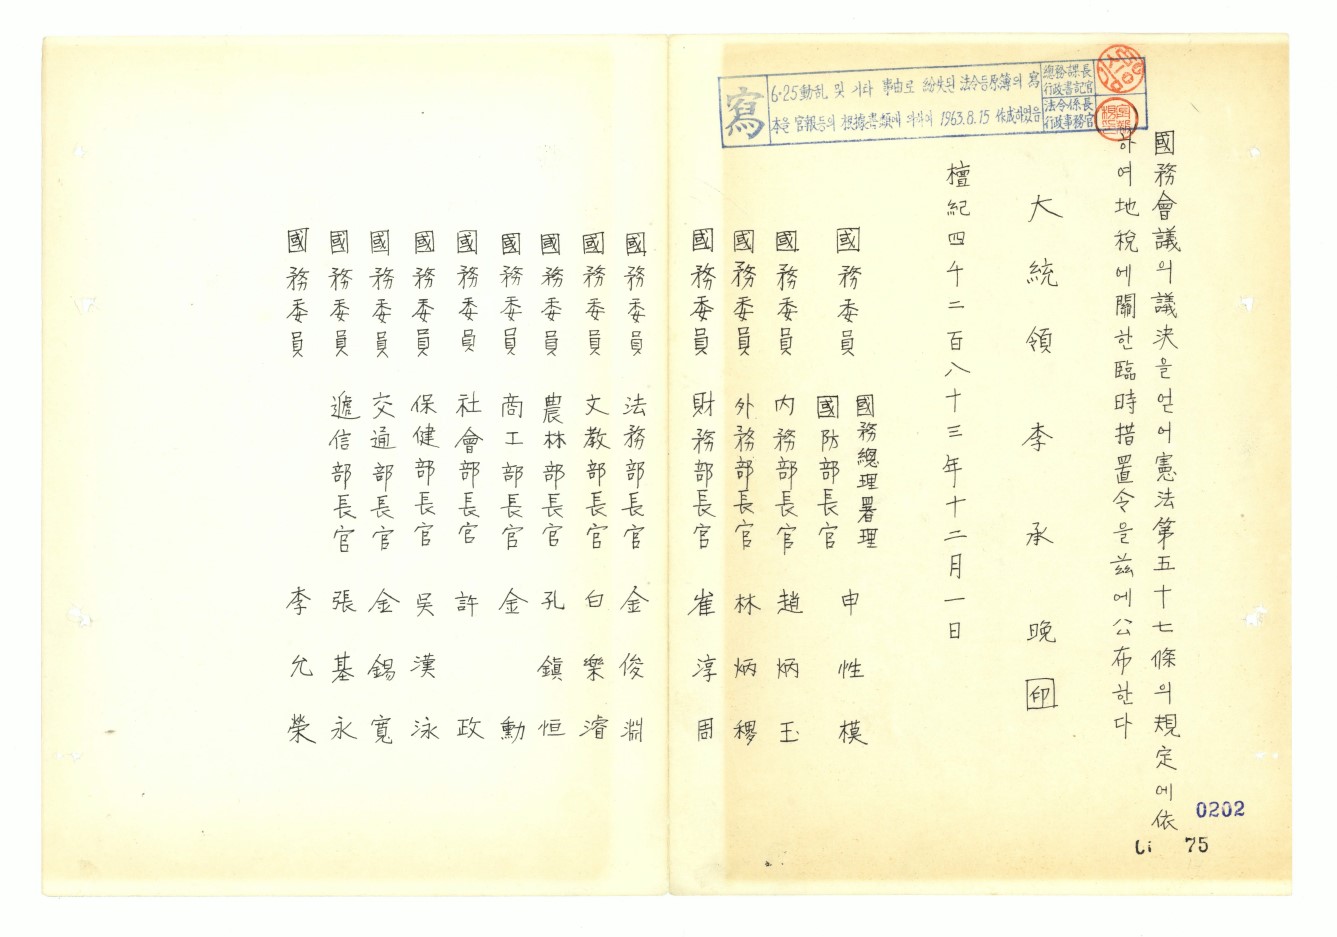 寫
6·25動乱 및 기타 事由로 紛失된 法令등原簿의 寫
本을 官報등의 根據書類에 의하여 1963.8.15 作成하였음
總務課長
行政書記官
法令係長
行政事務官
國務會議의議決을얻어憲法第五十七條의規定에依
하여地稅에關한臨時措置令을玆에公布한다
大統領 李承晚 印
檀紀四千二百八十三年十二月一日
國務委員 國務總理署理 國防部長官 申性模
國務委員 內務部長官 趙炳玉
國務委員 外務部長官 林炳稷
國務委員 財務部長官 崔淳周
國務委員 法務部長官 金俊淵
國務委員 文敎部長官 白樂濬
國務委員 農林部長官 孔鎭恒
國務委員 商工部長官 金勳
國務委員 社會部長官 許政
國務委員 保健部長官 吳漢泳
國務委員 交通部長官 金錫寬
國務委員 遞信部長官 張基永
國務委員 李允榮
0202
Li 75